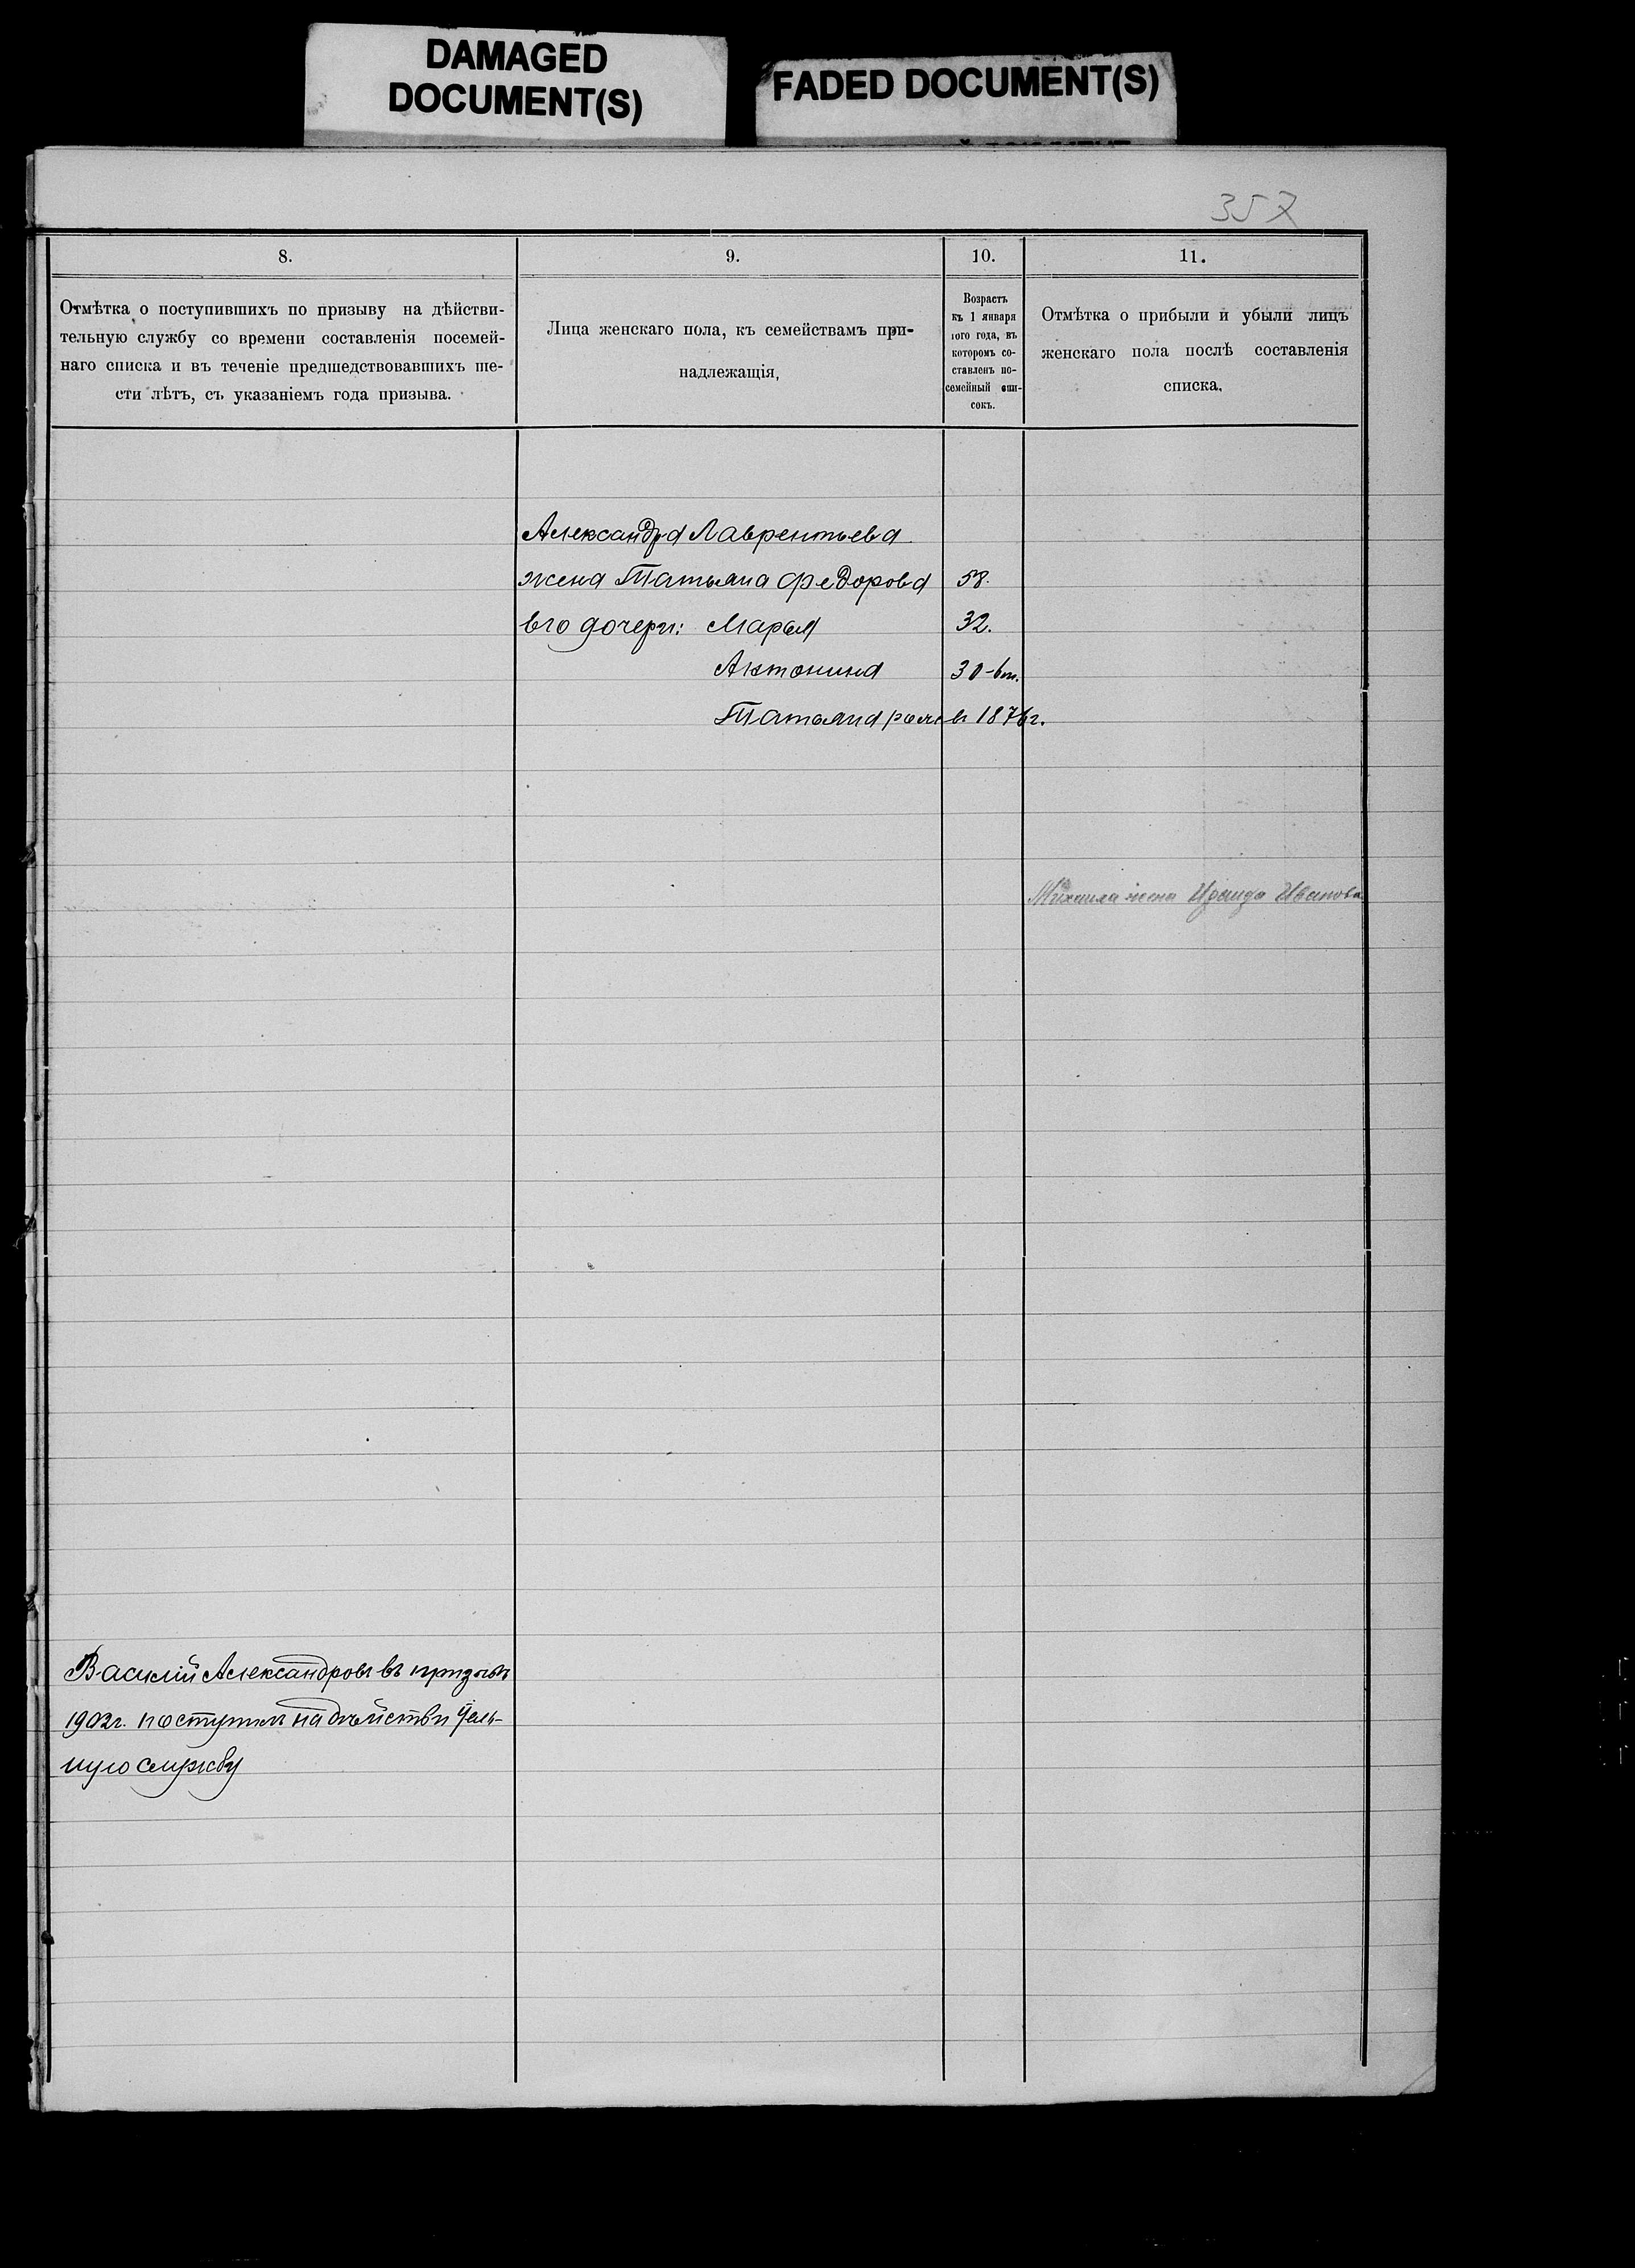 DAMAGED
DOCUMENT(S)
FADED DOCUMENT(S)
357
8.
Отмѣтка о поступившихъ по призыву на дѣйстви-
тельную службу со времени составленія посемей-
наго списка и въ теченіе предшедствовавшихъ ше-
сти лѣтъ, съ указаніемъ года призыва.
9.
Лица женскаго пола, къ семействамъ при-
надлежащія,
10.
Возрастъ
къ 1 января
того года, въ
которомъ со-
ставленъ по-
семейный спи-
сокъ.
11.
Отмѣтка о прибыли и убыли лицъ
женскаго пола послѣ составленія
списка.
Александра Лаврентьева
жена Татьяна Федорова 58.
его дочери: Марья 32.
Антонина 30-
Татьяна в 1876г.
Михаила жена Ираида Иванова
Василій Александровъ въ призывъ
1902г. поступилъ на дѣйствитель-
ную службу